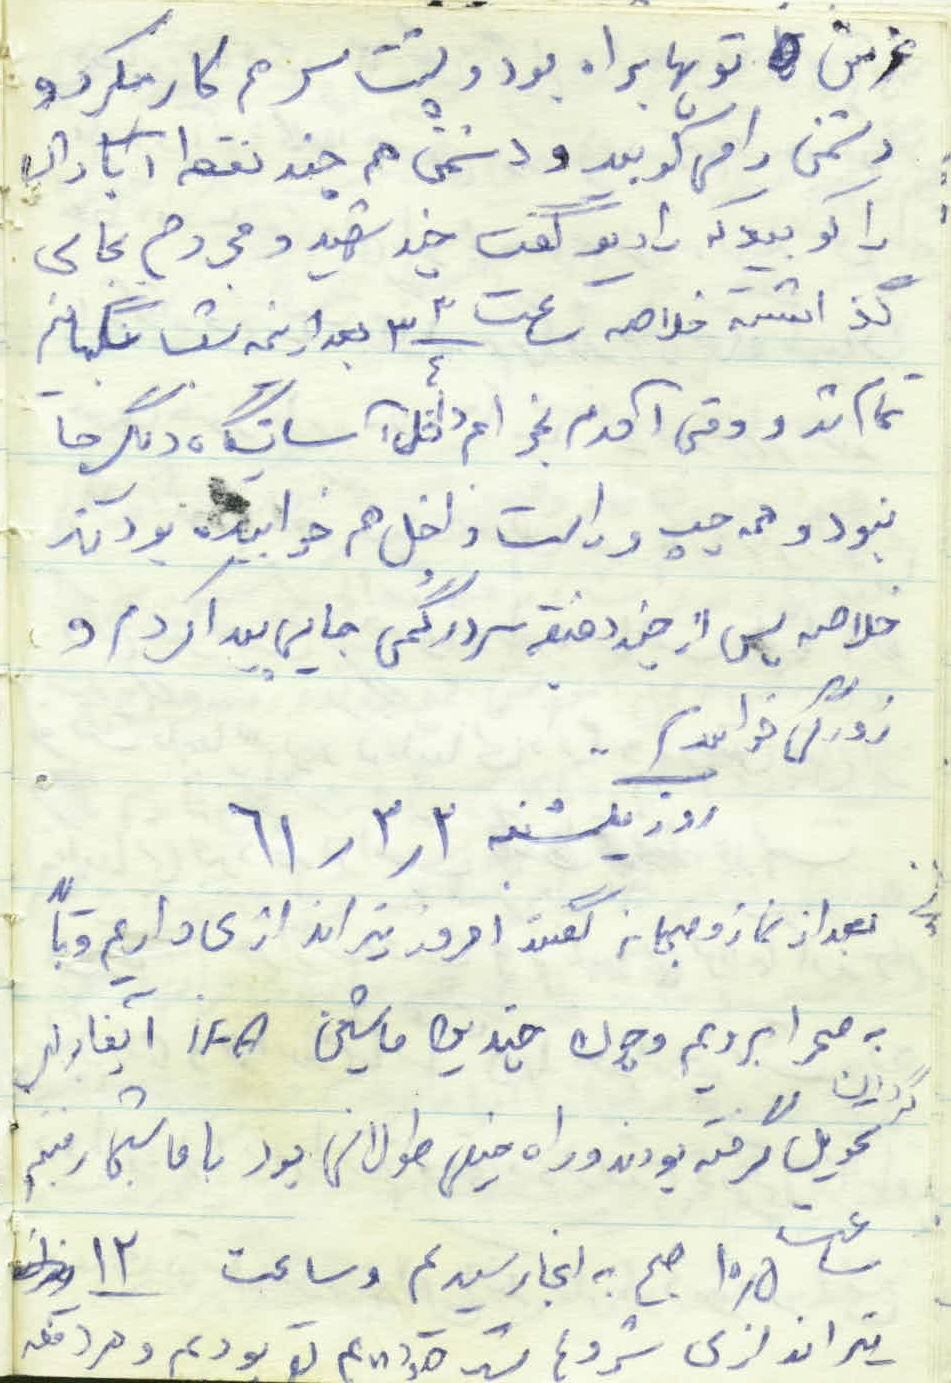 غرش توپها براه بود و پشت سر هم کار میکرد و
دشمن را می‌کوبید و دشمن هم چند نقطه آبادان
را کوبید که رادیو گفت چند شهید و مجروح بجای
گذاشته خلاصه ساعت ۳ ۳/۴ بعد از نیمه شب نگهبانیم
تمام شد و وقتی آمدم بخوابم داخل آسایشگاه دیگر جا
نبود و همه چپ و راست و بغل هم خوابیده بودند
خلاصه پس از چند دقیقه سردرگمی جایی پیدا کردم و
زورکی خوابیدم ..
روز یکشنبه ۳ر۳ر۶۱
بعد از نماز و صبحانه گفتند امروز تیراندازی داریم و با
به صحرا برویم و چون چندین ماشین آیفا برای
گردان
تحویل گرفته بودند و راه خیلی طولانی بود با ماشینها رفتیم
ساعت
۱۰٫۵ صبح به آنجا رسیدیم و ساعت ۱۲
تیراندازی شروع شد بودیم و هر دفعه